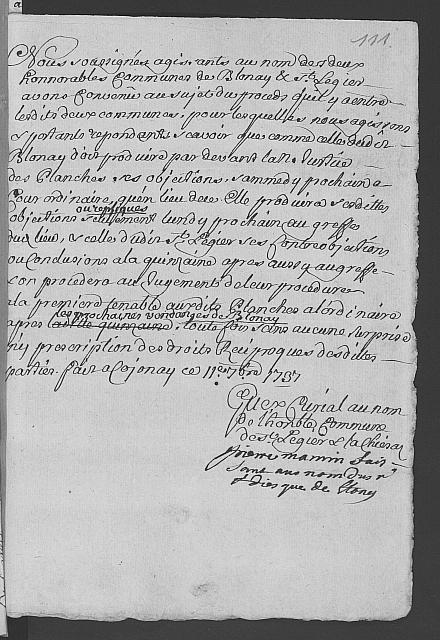 111.
Nous soussignés agissants au nom des deux
honnorables Communes de Blonay & St. Legier
avons Convenû au sujet du procedz quil y a entre
lesdits deux communes, pour lesquelles nous agissons
& portants repondents, scavoir que comme celle dudit
Blonay doit produire par devant la
des Planches, ses objections, sammedy prochain a
Pour ordinaire, qu'en lieu de ce Elle produira sesdittes
ou repliques
objections seullement lundy prochain au greffe
du lieu, & celles dudit St. Legier ses Contreobjections
ou Conclusions a la quinzaine apres aussy au greffe
& on procedera au Jugement de leur procedure
a la premiere tenable auxdits Planches a l'ordinaire
les prochaines vendanges de Blonay
apres laditte quinzaine, toute fois sans aucune surprise
ny prescription des droits Reciproques desdittes
parties. fait a Cojonay ce 11e 7bre 1737
Curial au nom
de l'honble Commune
de St. Legier & la Chiésaz
pierre mamin fais
sant au nom
que de Blonay